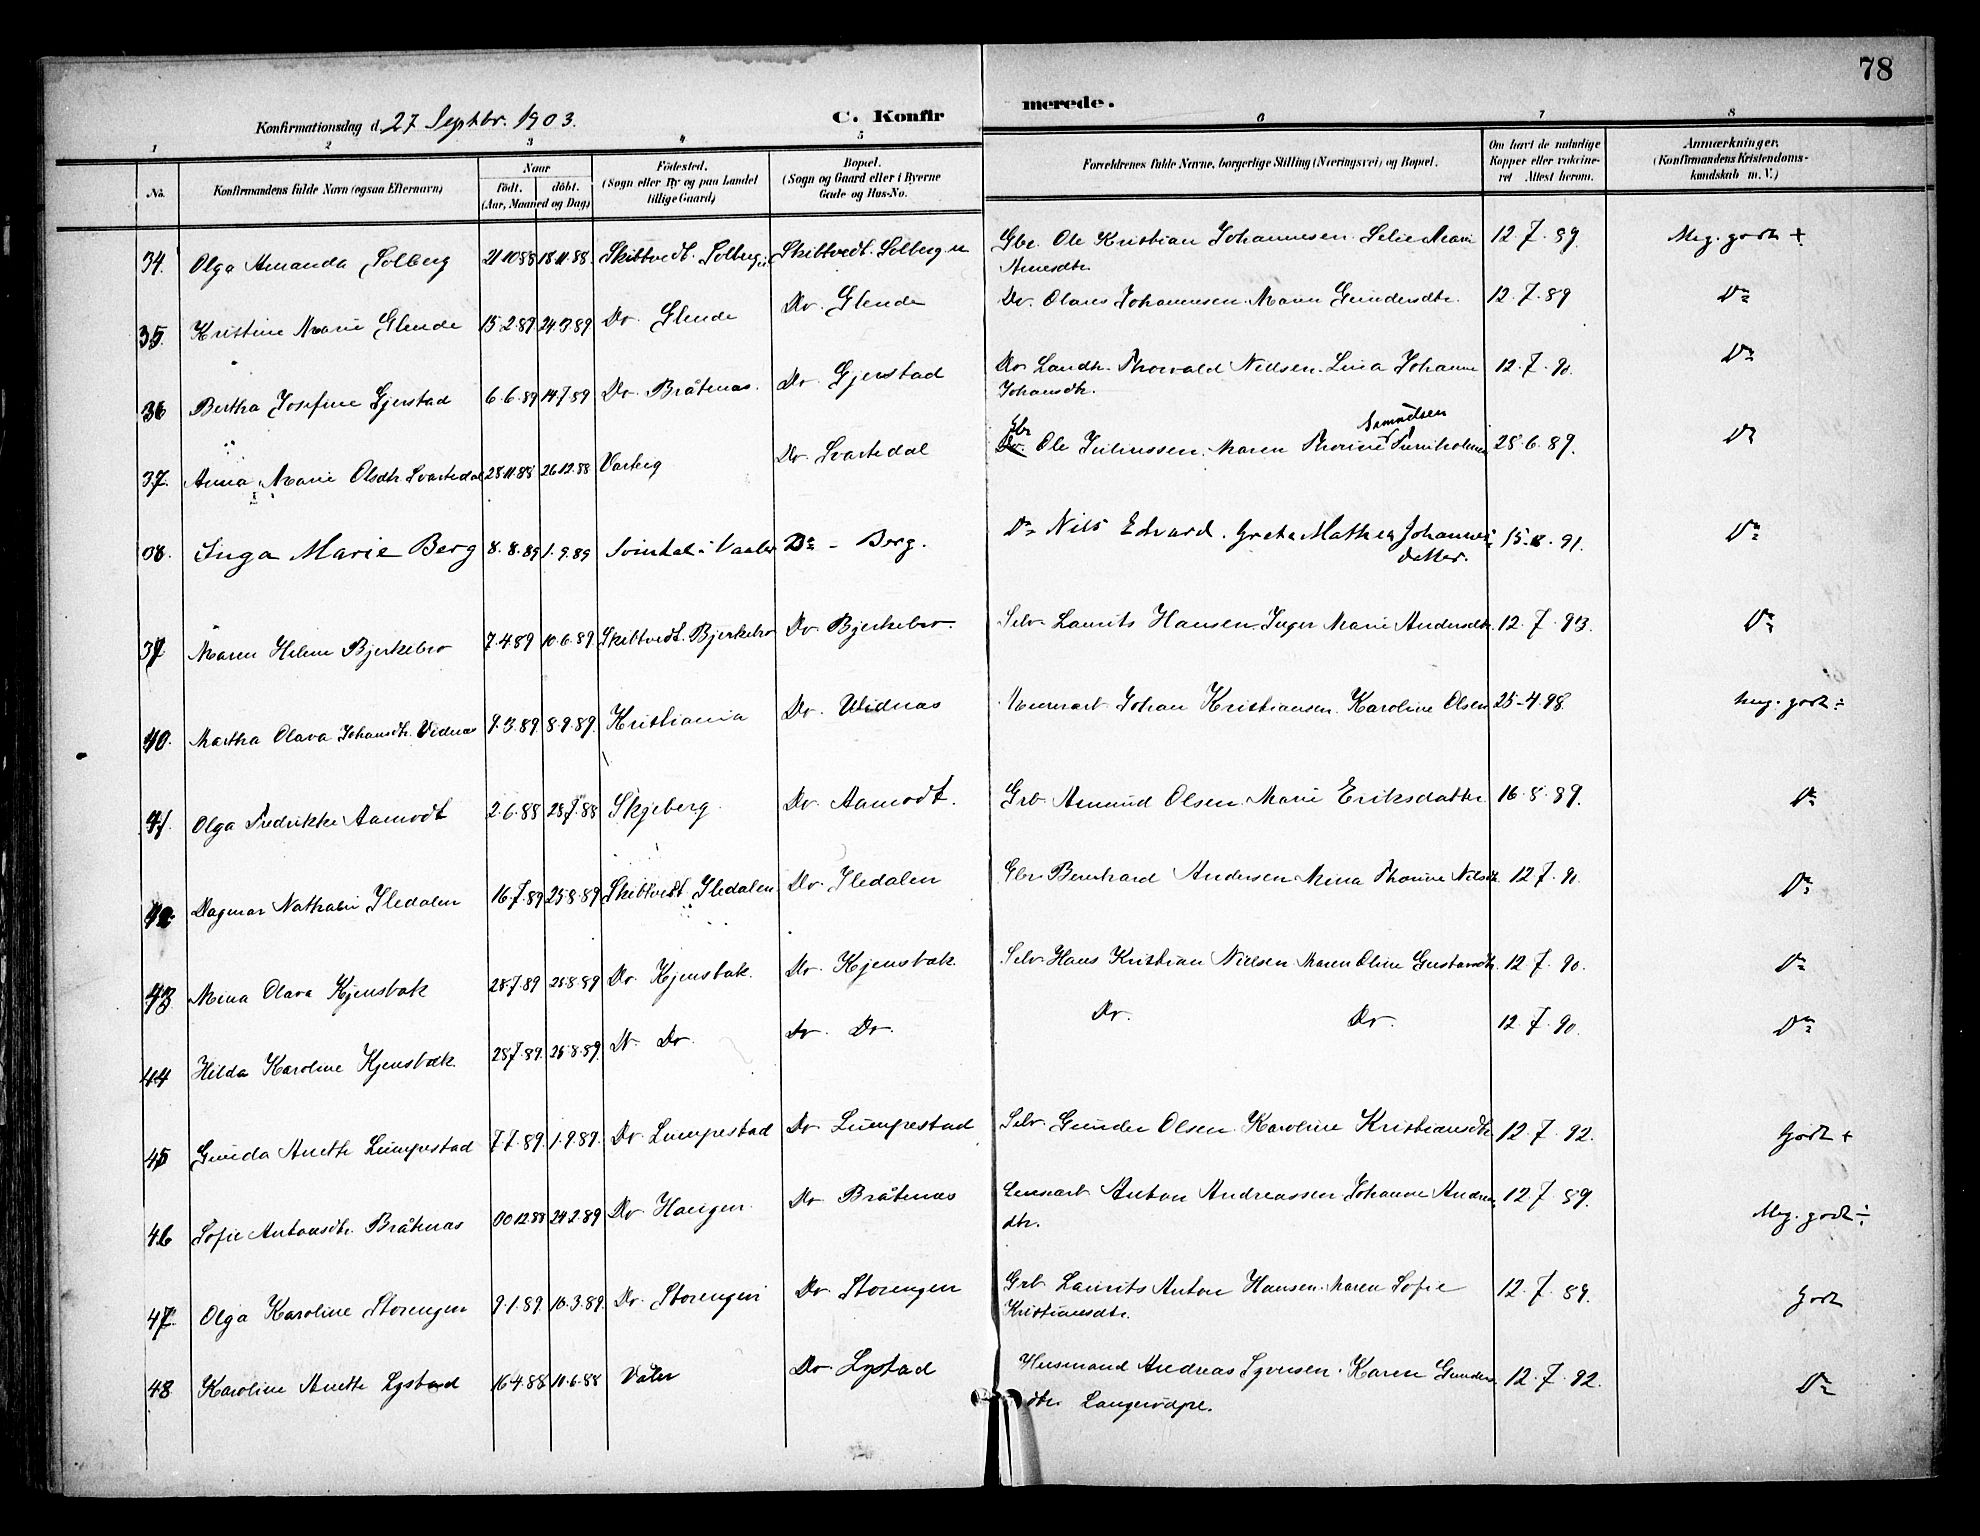 78
Konfirmationsdag d. 27 Septbr. 1903.
C. Konfirmerede.
1 2 3 4 5 6 7 8
No.
Konfirmandens fulde Navn (ogsaa Efternavn)
Naar
født. døbt.
(Aar, Maaned og Dag)
Fødested.
(Sogn eller By og paa Landet
tillige Gaard)
Bopæl.
(Sogn og Gaard eller i Byerne
Gade og Hus-No.
Forældrenes fulde Navne, borgerlige Stilling (Næringsvei) og Bopæl.
Om havt de naturlige
Kopper eller vakcine-
ret Attest herom.
Anmærkninger.
(Konfirmandens Kristendoms-
kundskab m. V.)
34. Olga Amanda Solberg 21 10 88 18.11.88. Skibtvedt. Solberg Skibtvedt. Solberg Gbr. Ole Kristian Johannesen. Marie 12.7.89. Meg. godt +
Arnesdtr.
35. Kristine Marie Glende 15.2.89. 24.3.89 Do. Glende Do. Glende Do. Olaves Johannesen. Maren Gundersdtr. 12.7.89 Do
36 Bertha Josefine Gjerstad 6.6.89 14.7.89 Do. Bråtenas. Do. Gjerstad Do Landh. Thorvald Nielsen. Lina Johanne 12.7.90. Do
Johansdtr.
37. Anna Marie Olsdtr. Svartedal 28.11.88 26.12.88 Varteig Do. Svartedal Gbr Ole Juliussen. Maren Thorine Samuelsen 28.6.89. Do
38. Inga Marie Berg 8.8.89 1.9.89 Svindal i Vaaler Do - Berg. Do Nils Edvard. Grete Mathea Johannes- 15. .91. Do
datter.
39 Maren Helene Bjerkebro 7.4.89 10.6.89 Skibtvedt. Bjerkebro Do. Bjerkebro. Selv. Laurits Hansen. Inger Marie Andersdtr. 12.7.93. Do
40. Martha Olava Johansdtr. Vidnas 9.3.89 8.9.89. Kristiania Do. Vidnas Murerarb. Johan Kristiansen. Karoline Olsen 25-4.98. Meg. godt ÷
41. Olga Fredrikke Aamodt 2.6.88 28.7.88 Skjeberg. Do. Aamodt. Grb. Amund Olsen. Marie Eriksdatter 16.8.89. Do
42. Dagmar Nathalie Iledalen 16.7.89 25.8.89 Skibtvedt Iledalen Do. Iledalen Gbr. Bernhard Andersen Mina Thorine Nilsdtr. 12.7.90. Do
43 Mina Olava Kjensbak 28.7.89 25.8.89 Do. Kjensbak. Do. Kjensbak. Selv. Hans Kristian Nielsen Maren Oline Gustavsdtr. 12.7.90. Do
44 Hilda Karoline Kjensbak. 28.7.89. 25.8.89. Do. Do. Do. Do. Do. Do. 12.7.90. Do
45 Gunda Anette Lumpestad 7.7.89. 1.9.89. Do. Lumpestad Do. Lumpestad Selv. Gunder Olsen. Karoline Kristiansdtr. 12.7.92. Godt +
46 Sofie Antonsdtr. Bråtenas 24.2.89 Do. Haugen. Do. Bråtenas Anton Andreassen. Johanne Andreas 12.7.89. Meg. godt ÷
dtr.
47. Olga Karoline Storengen 9.1.89. 10.3.89. Do. Storengen Do. Storengen Grb. Laurits Anton Hansen. Maren Sofie 12.7.89. Godt
Kristiansdtr.
48 Karoline Anette Lystad 16.4.88 11.6.88 Våler Do. Lystad Husmand Andreas Syversen. Karen Gunders 12.7.92. Do
dtr.